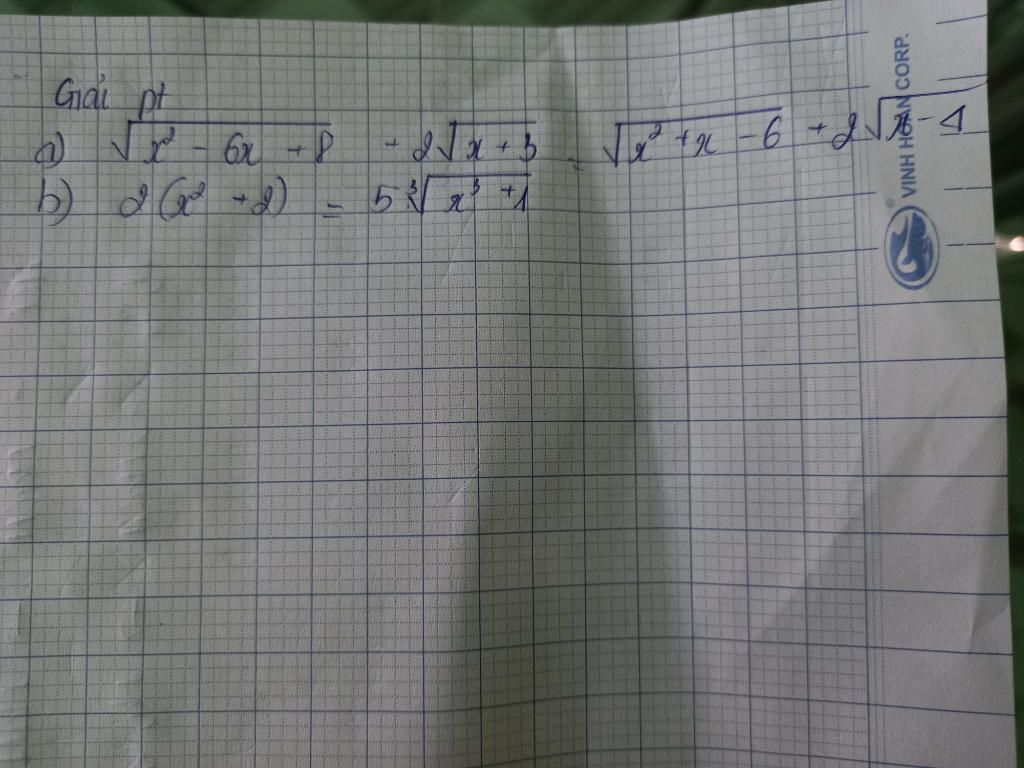 Giải pt
a) √(x² - 6x + 8) + 2√(x + 3) = √(x² + x - 6) + 2√(x - 1)
b) 2(x² + 2) = 5∛(x³ + 1)
VINH HOAN CORP.
®